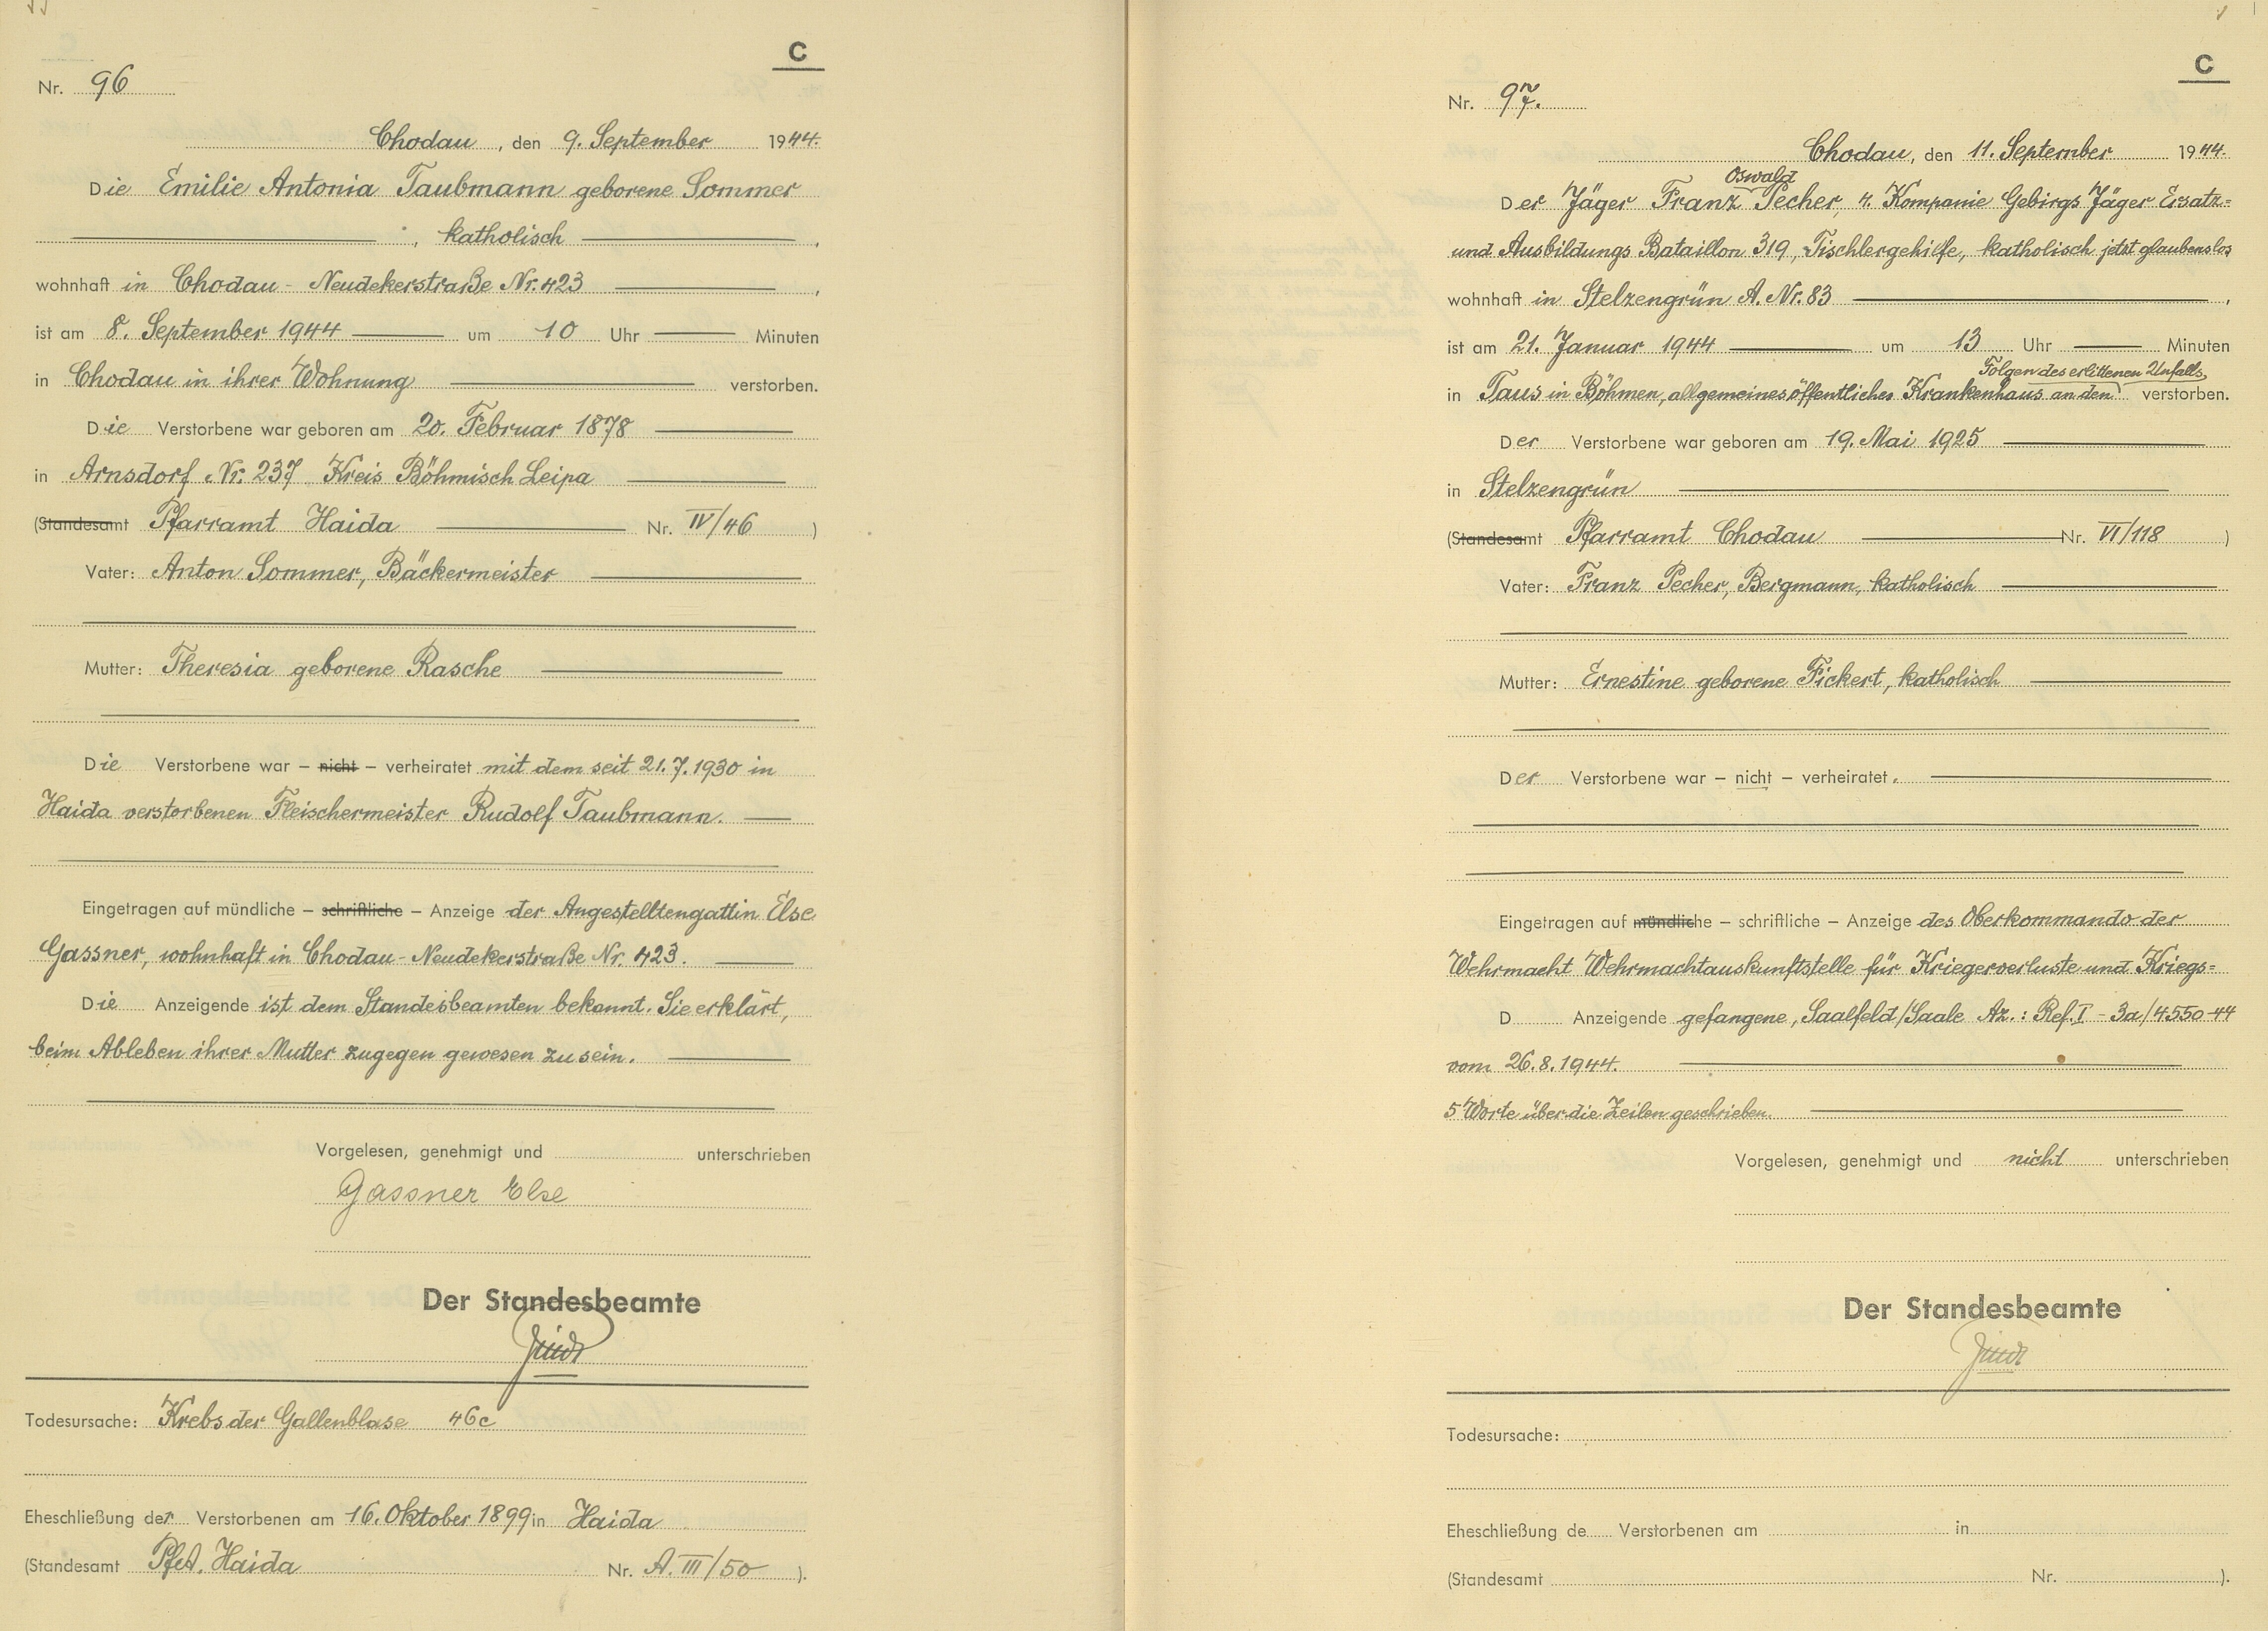 C
Nr. 96
Chodau, den 9. September 1944.
Die Emilie Antonia Taubmann geborene Sommer
, katholisch ,
wohnhaft in Chodau - Neudekerstraße Nr. 423 ,
ist am 8. September 1944 um 10 Uhr Minuten
in Chodau in ihrer Wohnung verstorben.
Die Verstorbene war geboren am 20. Februar 1878
in Arnsdorf Nr. 237 Kreis Böhmisch Leipa
(Standesamt Pfarramt Haida Nr. IV/46 )
Vater: Anton Sommer, Bäckermeister
Mutter: Theresia geborene Rasche
Die Verstorbene war – nicht – verheiratet mit dem seit 21.7.1930 in
Haida verstorbenen Fleischermeister Rudolf Taubmann.
Eingetragen auf mündliche – schriftliche – Anzeige der Angestelltengattin Else
Gassner, wohnhaft in Chodau - Neudekerstraße Nr. 423.
Die Anzeigende ist dem Standesbeamten bekannt. Sie erklärt,
beim Ableben ihrer Mutter zugegen gewesen zu sein.
Vorgelesen, genehmigt und unterschrieben
Gassner Else
Der Standesbeamte
Todesursache: Krebs der Gallenblase 46c
Eheschließung der Verstorbenen am 16. Oktober 1899 in Haida
(Standesamt PfA. Haida Nr. A. III/50 ).
C
Nr. 97.
Chodau, den 11. September 1944.
Oswald
Der Jäger Franz Pecher, 4. Kompanie Gebirgs Jäger Ersatz=
und Ausbildungs Bataillon 319, Tischlergehilfe, katholisch jetzt glaubenslos
wohnhaft in Stelzengrün A. Nr. 83 ,
ist am 21. Januar 1944 um 13 Uhr Minuten
Folgen des erlittenen Unfalls
in Taus in Böhmen, allgemeines öffentliches Krankenhaus an den verstorben.
Der Verstorbene war geboren am 19. Mai 1925
in Stelzengrün
(Standesamt Pfarramt Chodau Nr. VI/118 )
Vater: Franz Pecher, Bergmann, katholisch
Mutter: Ernestine geborene Fickert, katholisch
Der Verstorbene war – nicht – verheiratet.
Eingetragen auf mündliche – schriftliche – Anzeige des Oberkommando der
Wehrmacht Wehrmachtauskunftstelle für Kriegerverluste und Kriegs=
D Anzeigende gefangene, Saalfeld/Saale Az.: Ref. I - 3a/4550-44
vom 26.8.1944.
5 Worte über die Zeilen geschrieben.
Vorgelesen, genehmigt und nicht unterschrieben
Der Standesbeamte
Todesursache:
Eheschließung de Verstorbenen am in
(Standesamt Nr. ).